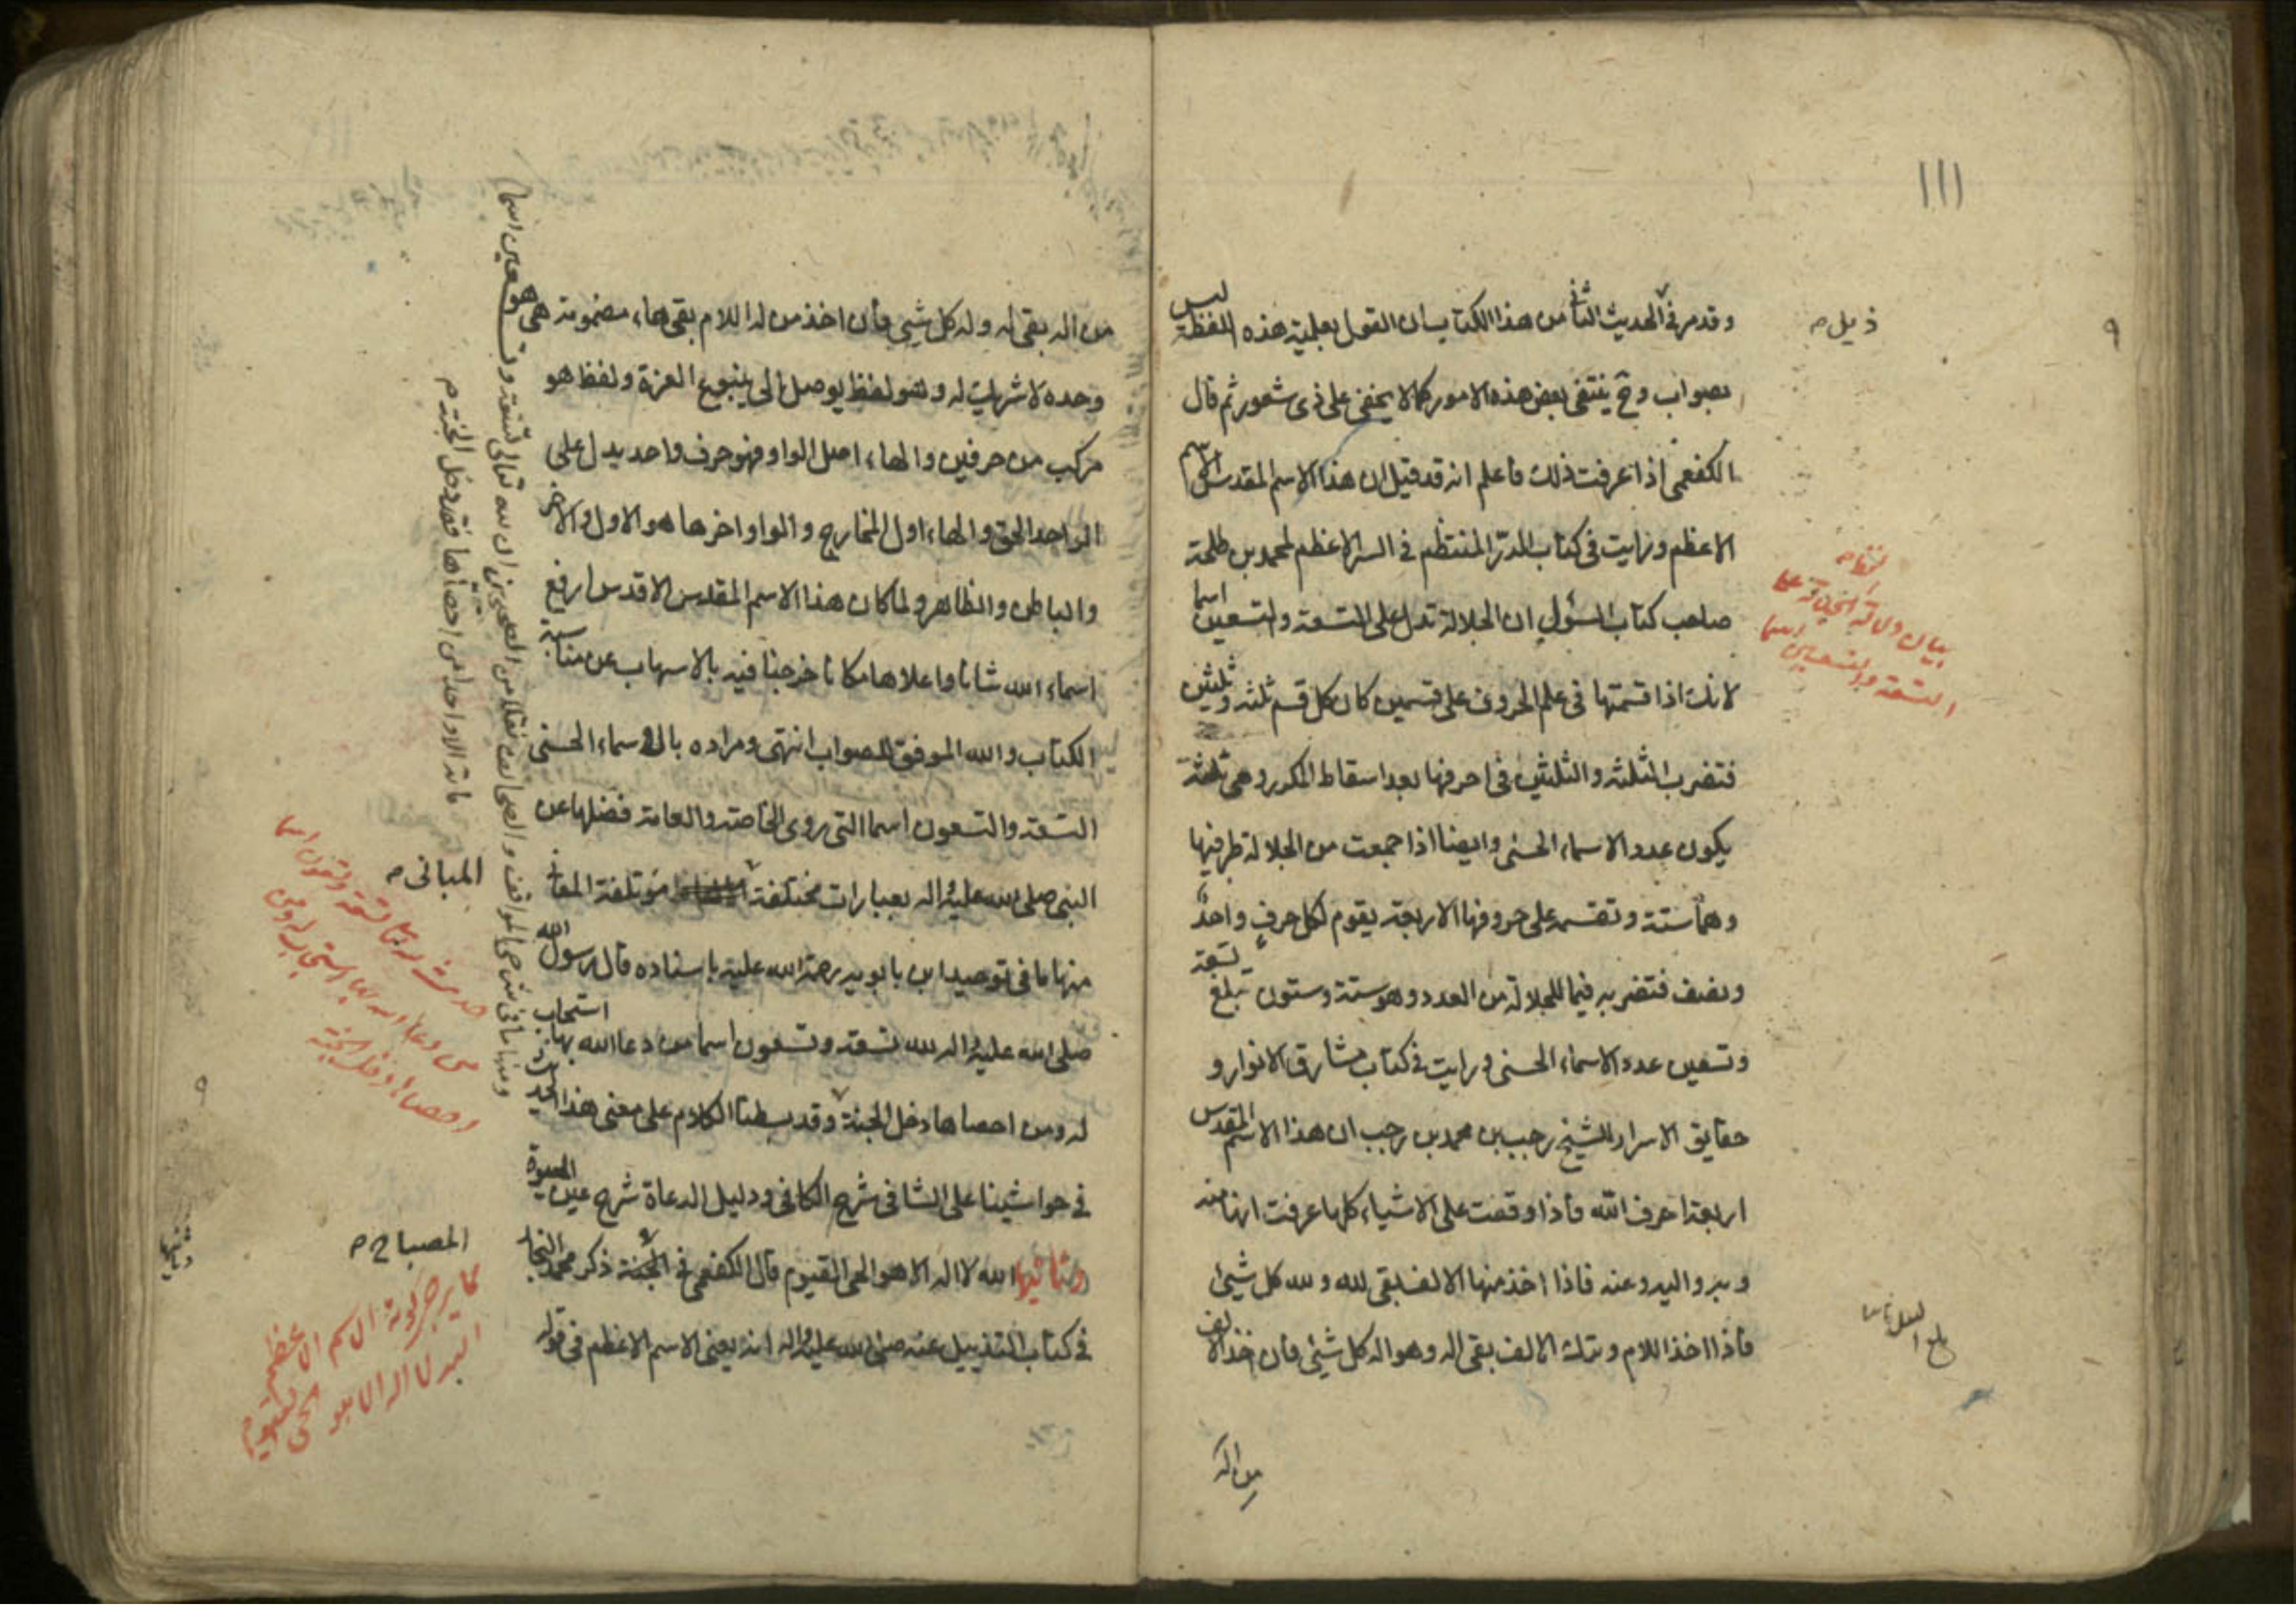 ١١١
وقد مر في الحديث الثاني من هذا الكتاب ان القول بعلمية هذه اللفظة ليس
بصواب وح ينتفى بعض هذه الامور كما لا يخفى على ذى شعور ثم قال
الكفعمى اذا عرفت ذلك فاعلم انه قد قيل ان هذا الاسم المقدس هو الاسم
الاعظم ورايت في كتاب الدر المنتظم في السر الاعظم لمحمد بن طلحة
صاحب كتاب السؤل ان الجلالة تدل على التسعة والتسعين اسما
لانك اذا قسمتها في علم الحروف على قسمين كان كل قسم ثلثه وثلثين
فتضرب الثلثه والثلثين في احرفها بعد اسقاط المكرر وهي ثلثة
يكون عدد الاسماء الحسنى وايضا اذا جمعت من الجلالة طرفيها
وهما ستة وتقسمه على حروفها الاربعة يقوم لكل حرف واحد
ونصف فتضربه فيما للجلالة من العدد وهو ستة وستون تبلغ تسعة
وتسعين عدد الاسماء الحسنى ورايت في كتاب مشارق الانوار و
حقايق الاسرار للشيخ رجب بن محمد بن رجب ان هذا الاسم المقدس
اربعة احرف الله فاذا وقفت على الاشياء كلها عرفت انها منه
وبه واليه وعنه فاذا اخذ منها الالف بقى لله ولله كل شيئ
فاذا اخذ اللام وترك الالف بقى اله وهو اله كل شيئ فان اخذ الالف
من اله
ذيل م
٩
بيان
التسعة والتسعين اسما
بلغ
من اله بقى له وله كل شيئ فان اخذ من له اللام بقى هاء مضمومة هي هو
وحده لا شريك له وهو لفظ يوصل الى ينبوع العزة ولفظ هو
مركب من حرفين والهاء اصل الواو فهو حرف واحد يدل على
الواحد الحق والهاء اول المخارج والواو اخرها هو الاول والاخر
والباطن والظاهر ولما كان هذا الاسم المقدس الاقدس ارفع
اسماء الله شانا واعلاها مكانا خرجنا فيه بالاسهاب عن مناسبة
الكتاب والله الموفق للصواب انتهى ومراده بالاسماء الحسنى
التسعة والتسعون اسما التي روى الخاصة والعامة فضلها عن
النبى صلى الله عليه واله بعبارات مختلفة مؤتلفة المعانى
منها ما في توحيد ابن بابويه رحمة الله عليه باسناده قال رسول الله
صلى الله عليه واله لله تسعة وتسعون اسما من دعا الله بها استجاب
له ومن احصاها دخل الجنة وقد بسطنا الكلام على معنى هذا الحديث
في حواشينا على الشافى شرح الكافى ودليل الدعاة شرح عين الحيوة
وثانيها الله لا اله الا هو الحى القيوم قال الكفعمى في الجنة ذكر محمد النجار
في كتاب التذييل عنه صلى الله عليه واله انه يعنى الاسم الاعظم في قوله
ومنها ما في شرحى المواقف والصحائف نقلا من الصحيحين ان لله تعالى تسعة وتسعين اسما
مائة الا واحدا من احصاها فقد دخل الجنة م
المبانى م
من دعا الله بها استجاب له ومن
احصاها دخل الجنة
٩
المصباح م
الاسم الاعظم
الله لا اله الا هو الحى القيوم
وثانيها